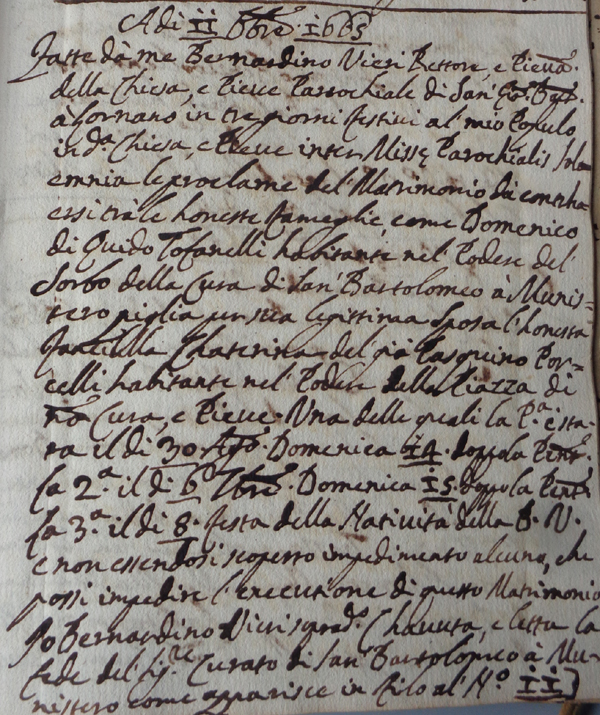 A di ii 8bre. 1665
Fatte dà me Bernardino Vieri Rettore, e Pieva.
della Chiesa, e Pieve Parrochiale di San' Gio. Bat.
à Fornano in tre giorni festivi al' mio Populo
in d.ª Chiesa, e Pieve inter Missę Parochialis
emnia le proclame del' Matrimonio dà contrha=
ersi trà le honeste fameglie, come Domenico
di Guido Tofanelli habitante nel' Podere del'
Sorbo della Cura di San' Bartolomeo à Munis=
tero piglia per sua legittima sposa l'honesta
Fanciulla Chaterina del già Pasquino Por=
celli habitante nel' Podere della Piazza di
Cura, e Pieve. Una delle quali la P.ª è sta-
ta il di 30 Agò. Domenica 14. doppo la Pent.
la 2.ª il di 6º 7bre. Domenica 15. doppo la Pent.
la 3.ª il di 8. festa della Natività della B. V.
e non essendosi scoperto impedimento alcuno, che
possi impedire l'executione di questo Matrimonio
Io Bernardino Vieri sprad.º l'havuta, e letta la
fede del' Curato di San' Bartolomeo à Mu-
nistero come apparisce in filo al' Nº II